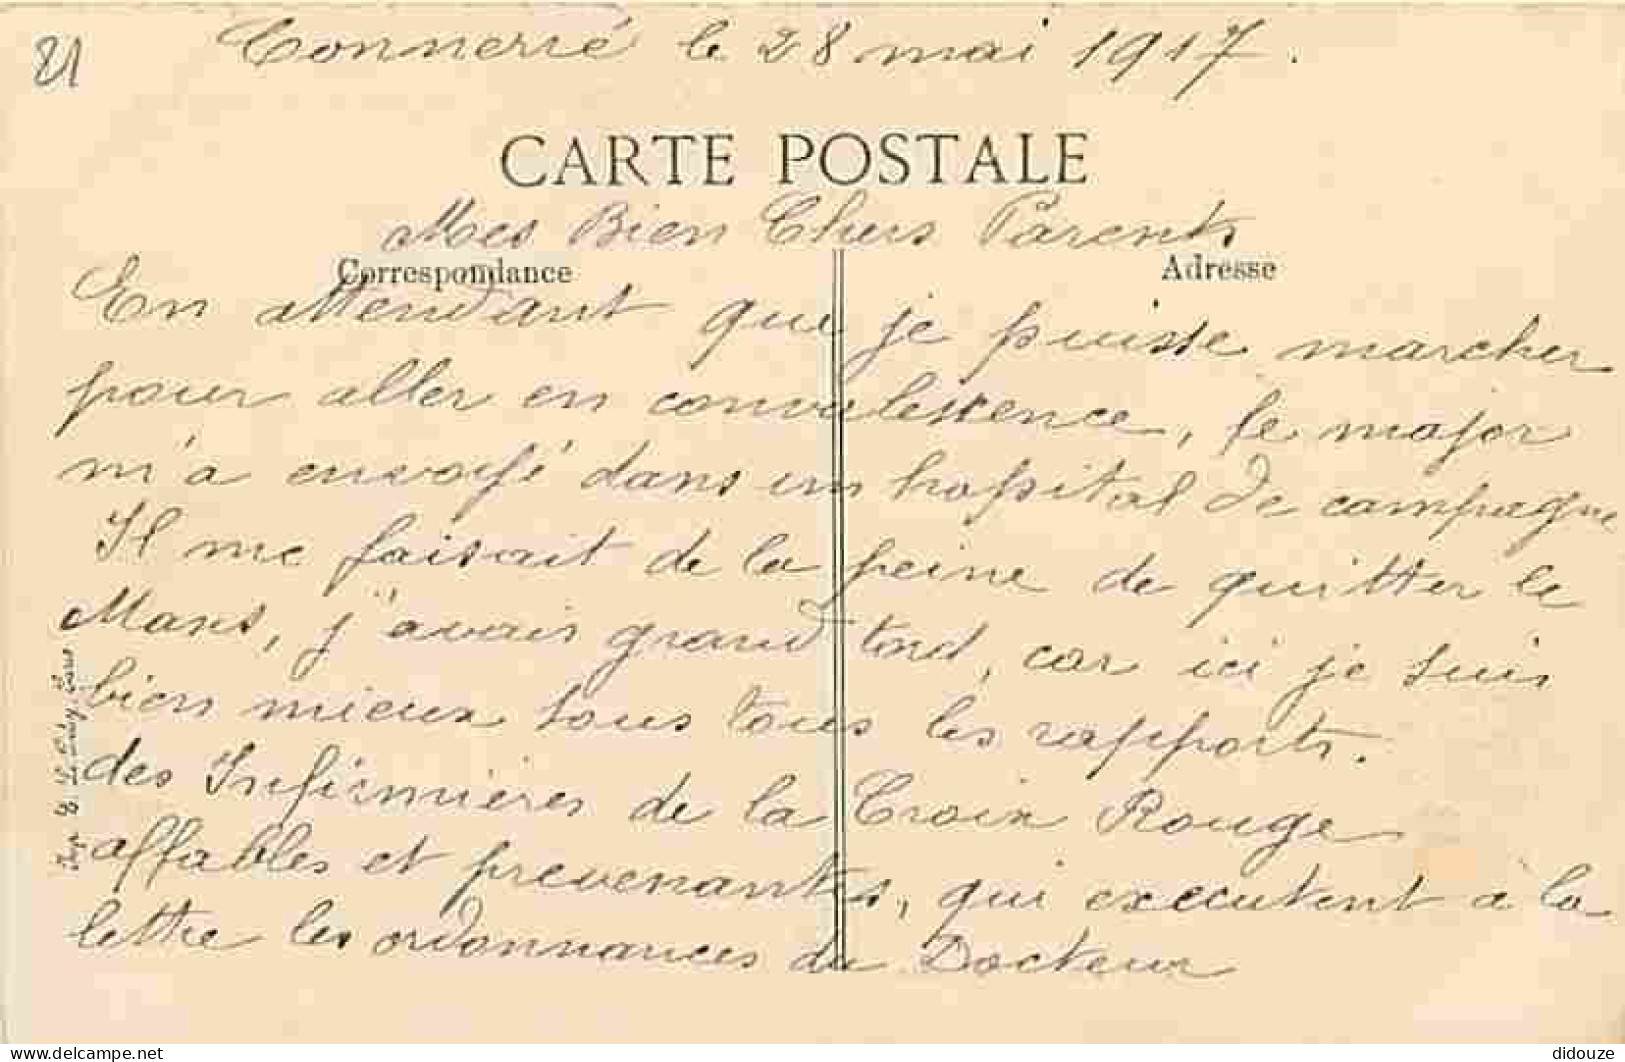 21
Connerré le 28 mai 1917.
CARTE POSTALE
Mes Bien Chers Parents
Correspondance
Adresse
En attendant que je puisse marcher
pour aller en convalescence, le major
m'a envoyé dans un hopital de campagne
Il me faisait de la peine de quitter le
Mans, j'avais grand tord, car ici je suis
bien mieux sous tous les rapports.
des Infirmières de la Croix Rouge
affables et prevenantes, qui executent a la
lettre les ordonnances du Docteur
Imp. Paris
delcampe.net
didouze